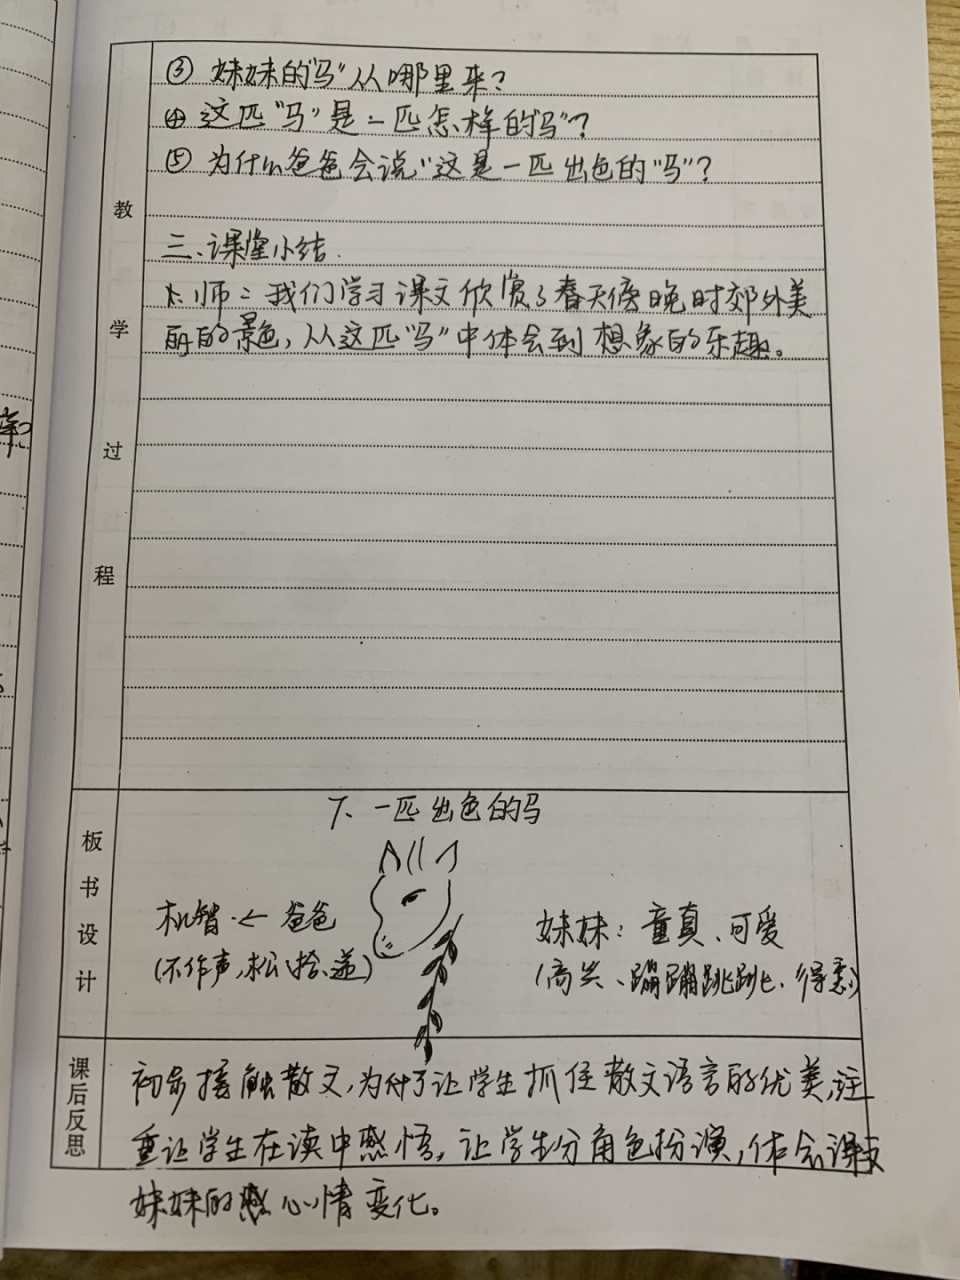 ③ 妹妹的"马"从哪里来？
④ 这匹"马"是一匹怎样的"马"？
⑤ 为什么爸爸会说"这是一匹出色的"马"？
教学过程
三、课堂小结.
1. 师：我们学习课文欣赏了春天傍晚时郊外美
丽的景色，从这匹"马"中体会到想象的乐趣。
板书设计
7、一匹出色的马
机智 ← 爸爸
妹妹：童真、可爱
(不作声,松、拾、递)
(高兴、蹦蹦跳跳、得意)
课后反思
初步接触散文，为了让学生抓住散文语言的优美，注
重让学生在读中感悟，让学生分角色扮演，体会课文
妹妹的心情变化。